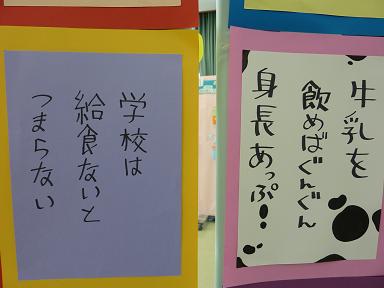 学校は
給食ないと
つまらない
牛乳を
飲めばぐんぐん
身長あっぷ!